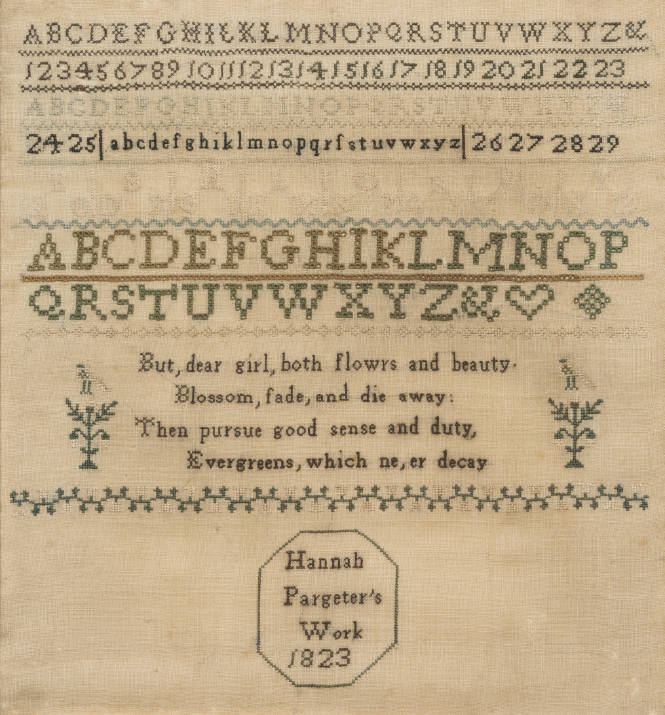 ABCDEFGHIKLMNOPQRSTUVWXYZ&
123456789 10 11 12 13 14 15 16 17 18 19 20 21 22 23
ABCDEFGHIKLMNOPQRSTUVWXYZ&
24 25 | abcdefghiklmnopqrſstuvwxyz | 26 27 28 29
ABCDEFGHIKLMNOP
QRSTUVWXYZ&
But, dear girl, both flowrs and beauty.
Blossom, fade, and die away:
Then pursue good sense and duty,
Evergreens, which ne,er decay
Hannah
Pargeter's
Work
1823